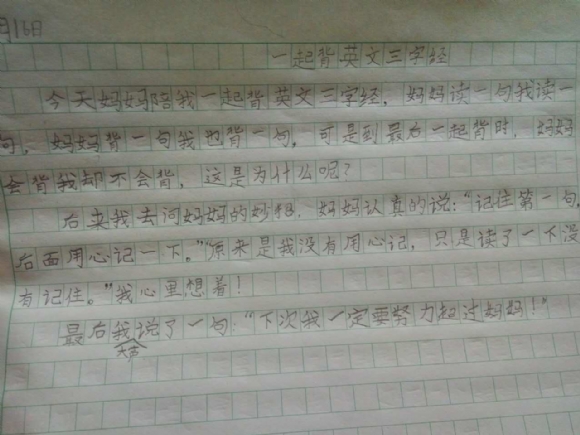 月16日
一起背英文三字经
今天妈妈陪我一起背英文三字经,妈妈读一句我读一
句,妈妈背一句我也背一句,可是到最后一起背时,妈妈
会背我却不会背,这是为什么呢?
后来我去问妈妈的妙招,妈妈认真的说:“记住第一句,
后面用心记一下。”原来是我没有用心记,只是读了一下没
有记住。”我心里想着!
最后我大声说了一句:“下次我一定要努力超过妈妈!”